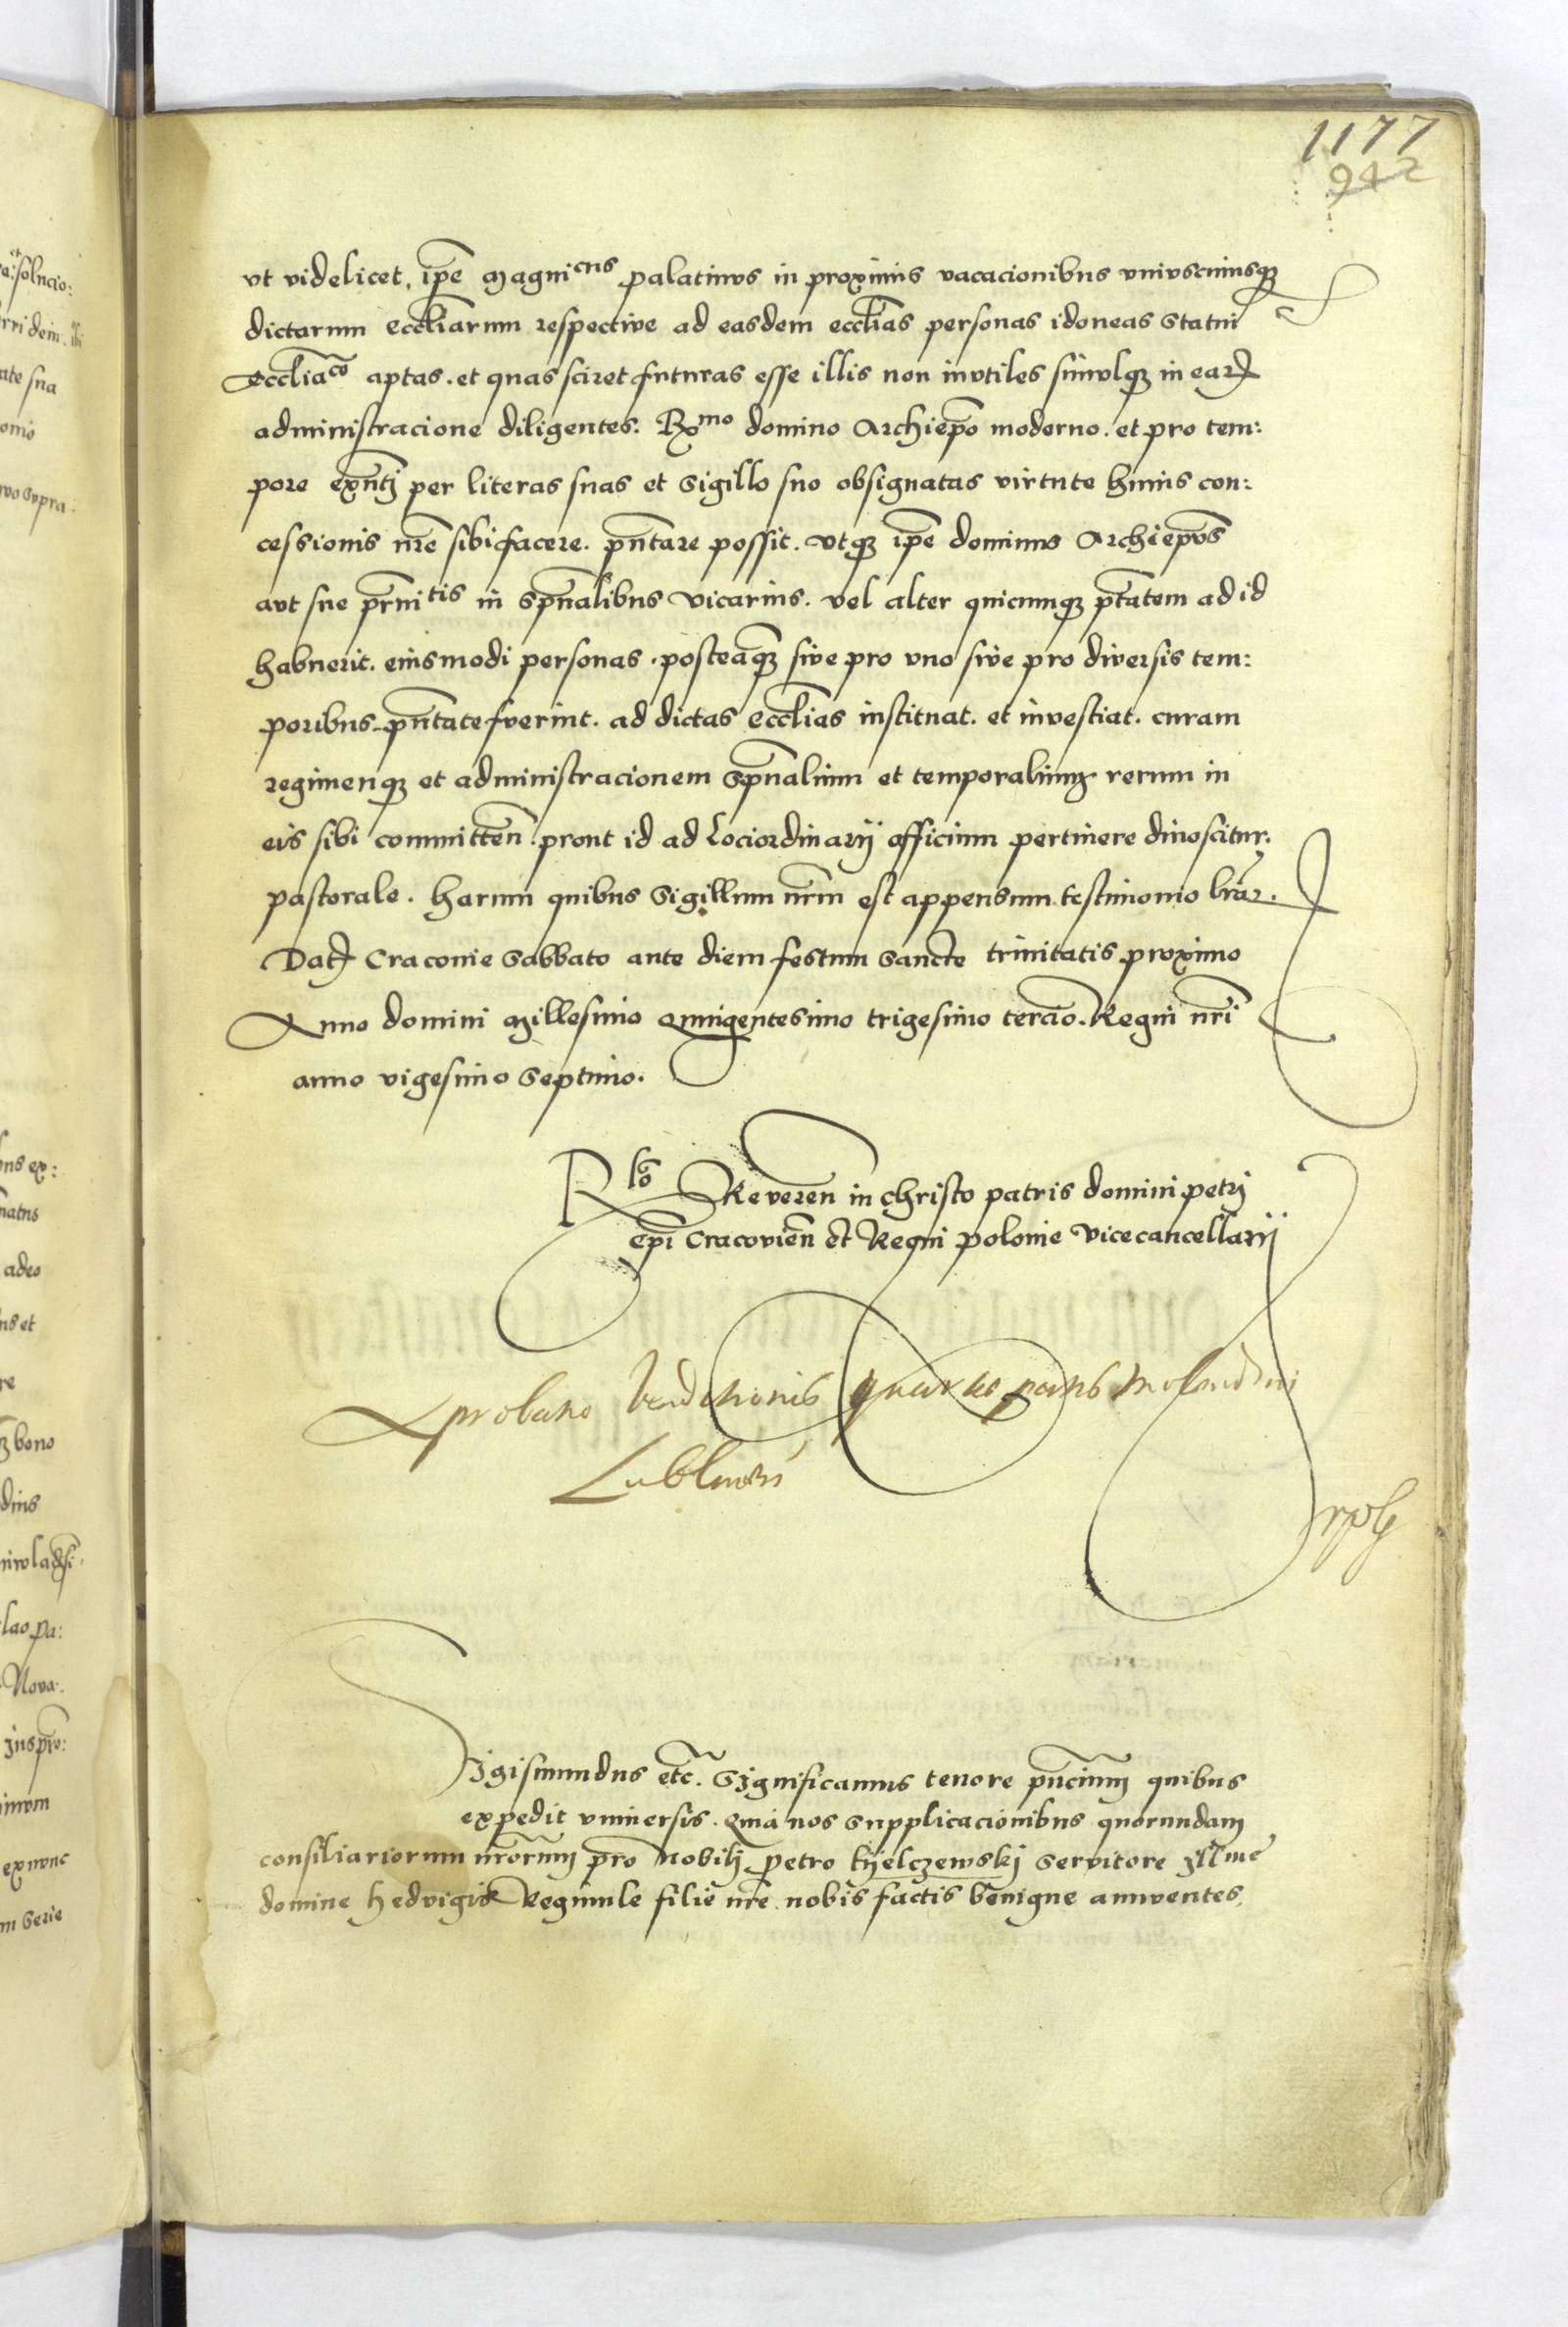 1177
942
vt videlicet, ip̄e Magnicus palatinus in proximis vacacionibus vniuscuiusq3
dictarum eccl̄iarum respective ad easdem eccl̄ias personas idoneas statui
Eccl̄iaco aptas. et quas sciret futuras esse illis non invtiles simulq3 in ear
administracione diligentes. Rxmo domino Archiep̄o moderno. et pro tem:
pore exn̄tj per literas suas et sigillo suo obsignatas virtute huius con:
cessionis nr̄e sibi facere. pn̄tare possit. vtq3 ip̄e dominus Archiep̄us
aut sue pr̄nitis in spūalibus vicarius. vel alter quicunq3 ptātem ad id
habuerit. eiusmodi personas. posteaq3 sive pro vno sive pro diversis tem:
poribus pn̄tate fuerint. ad dictas eccl̄ias instituat. et investiat. curam
regimenq3 et administracionem spūalium et temporalium rerum in
eis sibi committen̄. prout id ad Lociordinarij officium pertinere dinoscitur.
pastorale. Harum quibus sigillum nr̄m est appensum testimonio lr̄ar.
Dat Craconie Sabbato ante diem festum Sancte trinitatis proximo
Anno domini Millesimo Quingentesimo trigesimo tercio. Regni nr̄i
anno vigesimo septimo.
Rlo Reveren̄ in christo patris domini petrj
ep̄i Cracovien̄ et Regni polonie vicecancellarij
Aprobatio Vendicionis quartae partis Molendini
Lublinen
Sigismundus etc̄. Significamus tenore pn̄cium quibus
expedit vniuersis. Quia nos supplicacionibus quorundam
consiliariorum nr̄orum pro Nobilj petro kijelczewskj servitore Jll̄me
domine Hedvigis Regimule filie nr̄e nobis factis benigne annventes.